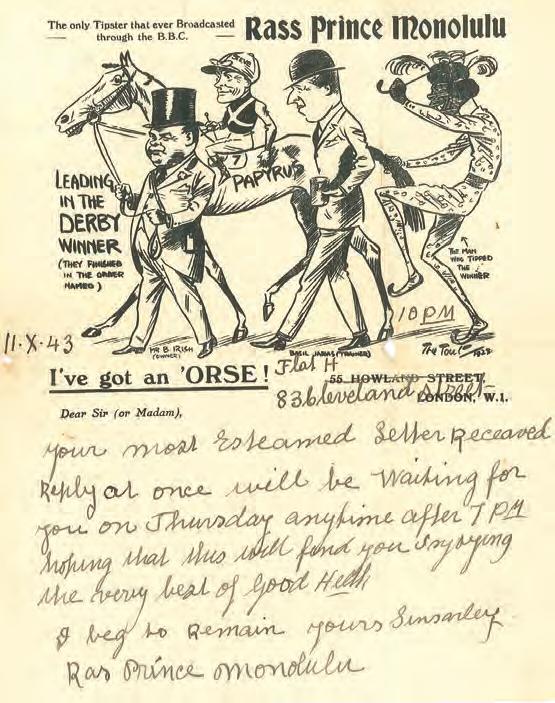 The only Tipster that ever Broadcasted
through the B.B.C.
Rass Prince Monolulu
LEADING
IN THE
DERBY
WINNER
(THEY FINISHED
IN THE ORDER
NAMED)
7
PAPYRUS
THE MAN
WHO TIPPED
THE
WINNER
10 PM
11·X·43
MR B. IRISH
(OWNER)
BASIL JARVIS (TRAINER)
The Tout
I've got an 'ORSE!
Flat H
55 HOWLAND STREET,
83 Cleveland Street
LONDON, W.1.
Dear Sir (or Madam),
your most Esteamed Letter Receaved
Reply at once will be Waiting for
you on Thursday anytime after 7 PM
hoping that this will find you Injoying
the very best of Good Helth
I beg to Remain yours Sinsarley
Ras Prince Monolulu